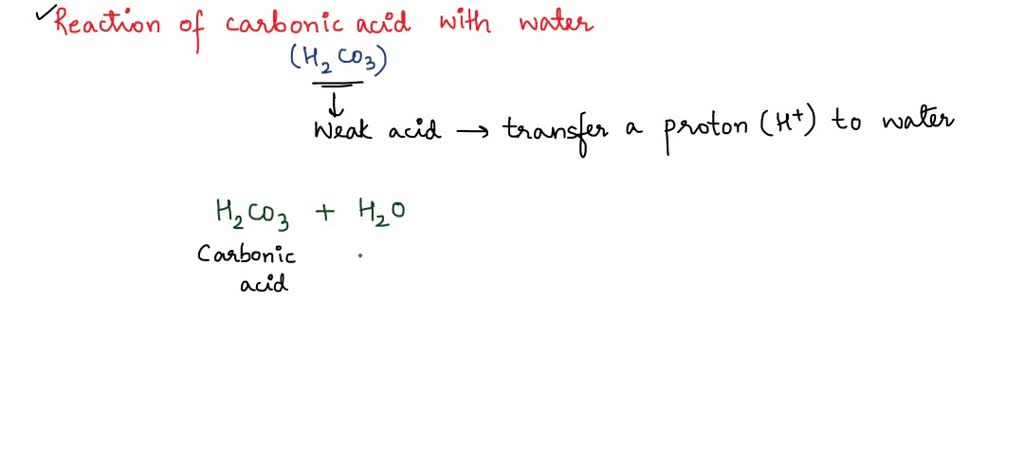 ✓Reaction of carbonic acid with water
(H₂CO₃)
↓
Weak acid → transfer a proton (H⁺) to water
H₂CO₃ + H₂O
Carbonic
acid